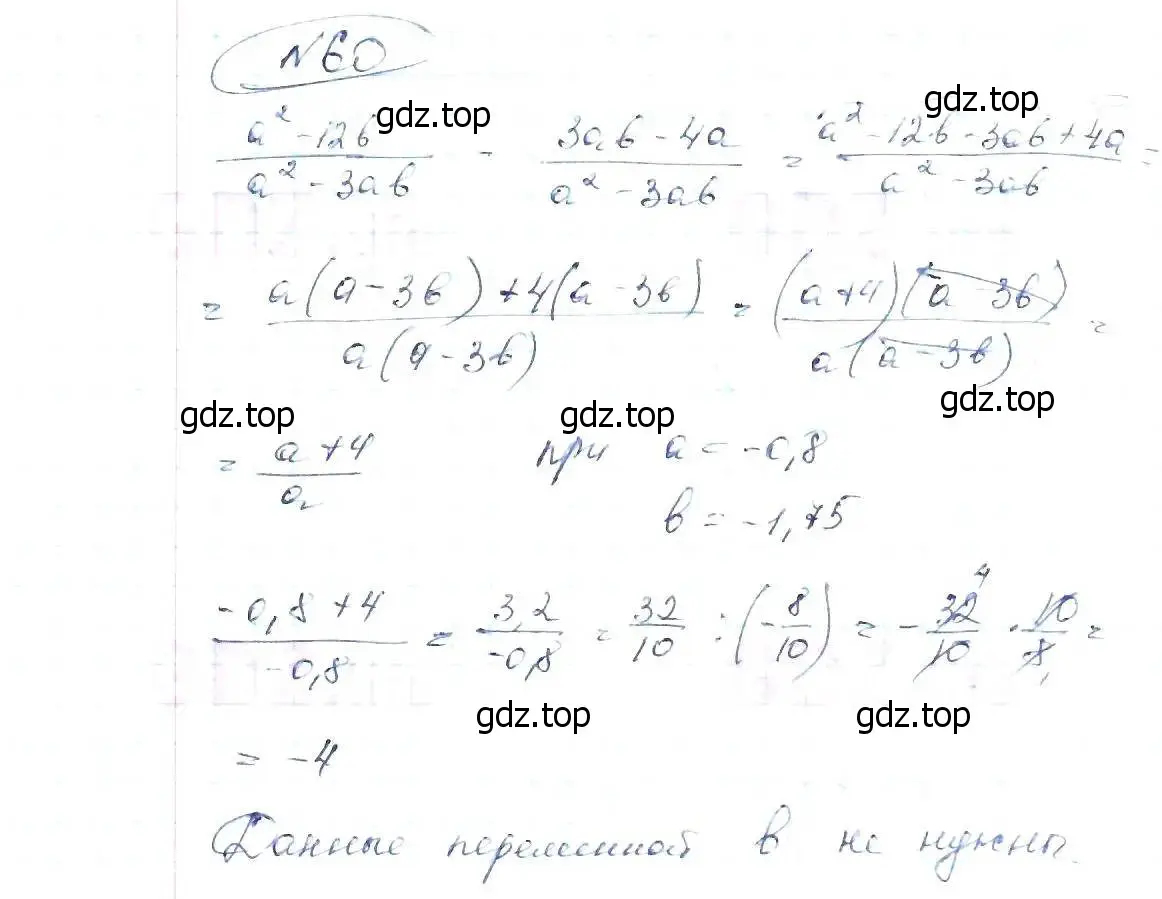 N60
gdz.top gdz.top
(a² - 12b)/(a² - 3ab) - (3ab - 4a)/(a² - 3ab) = (a² - 12b - 3ab + 4a)/(a² - 3ab) =
= (a(a - 3b) + 4(a - 3b))/(a(a - 3b)) = ((a + 4)(a - 3b))/(a(a - 3b)) =
gdz.top gdz.top gdz.top
= (a + 4)/a при a = -0,8
b = -1,75
(-0,8 + 4)/(-0,8) = 3,2/(-0,8) = 32/10 : (-8/10) = - 32/10 · 10/8 =
4
1
gdz.top gdz.top
= -4
Данные переменной b не нужны.